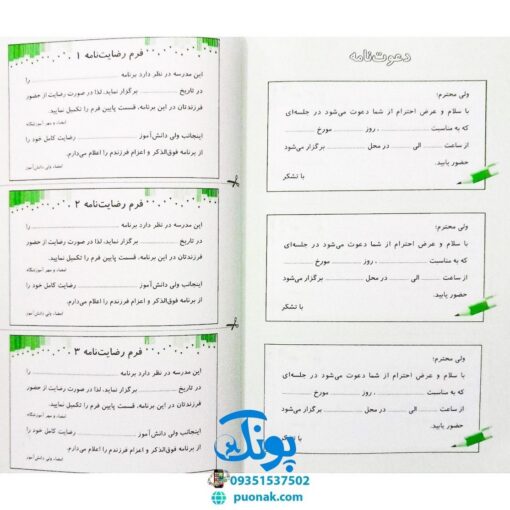 دعوت‌نامه
ولی محترم:
با سلام و عرض احترام از شما دعوت می‌شود در جلسه‌ای
که به مناسبت ........ ، روز ........ مورخ ........
از ساعت ........ الی ........ در محل ........ برگزار می‌شود
حضور یابید.
با تشکر
ولی محترم:
با سلام و عرض احترام از شما دعوت می‌شود در جلسه‌ای
که به مناسبت ........ ، روز ........ مورخ ........
از ساعت ........ الی ........ در محل ........ برگزار می‌شود
حضور یابید.
با تشکر
ولی محترم:
با سلام و عرض احترام از شما دعوت می‌شود در جلسه‌ای
که به مناسبت ........ ، روز ........ مورخ ........
از ساعت ........ الی ........ در محل ........ برگزار می‌شود
حضور یابید.
با تشکر
فرم رضایت‌نامه ۱
این مدرسه در نظر دارد برنامه ........ را
در تاریخ ........ برگزار نماید. لذا در صورت رضایت از حضور
فرزندتان در این برنامه، قسمت پایین فرم را تکمیل نمایید.
امضاء و مهر آموزشگاه
اینجانب ولی دانش‌آموز ........ رضایت کامل خود را
از برنامه فوق‌الذکر و اعزام فرزندم را اعلام می‌دارم.
امضاء ولی دانش‌آموز
فرم رضایت‌نامه ۲
این مدرسه در نظر دارد برنامه ........ را
در تاریخ ........ برگزار نماید. لذا در صورت رضایت از حضور
فرزندتان در این برنامه، قسمت پایین فرم را تکمیل نمایید.
امضاء و مهر آموزشگاه
اینجانب ولی دانش‌آموز ........ رضایت کامل خود را
از برنامه فوق‌الذکر و اعزام فرزندم را اعلام می‌دارم.
امضاء ولی دانش‌آموز
فرم رضایت‌نامه ۳
این مدرسه در نظر دارد برنامه ........ را
در تاریخ ........ برگزار نماید. لذا در صورت رضایت از حضور
فرزندتان در این برنامه، قسمت پایین فرم را تکمیل نمایید.
امضاء و مهر آموزشگاه
اینجانب ولی دانش‌آموز ........ رضایت کامل خود را
از برنامه فوق‌الذکر و اعزام فرزندم را اعلام می‌دارم.
امضاء ولی دانش‌آموز
پونک
09351537502
puonak.com